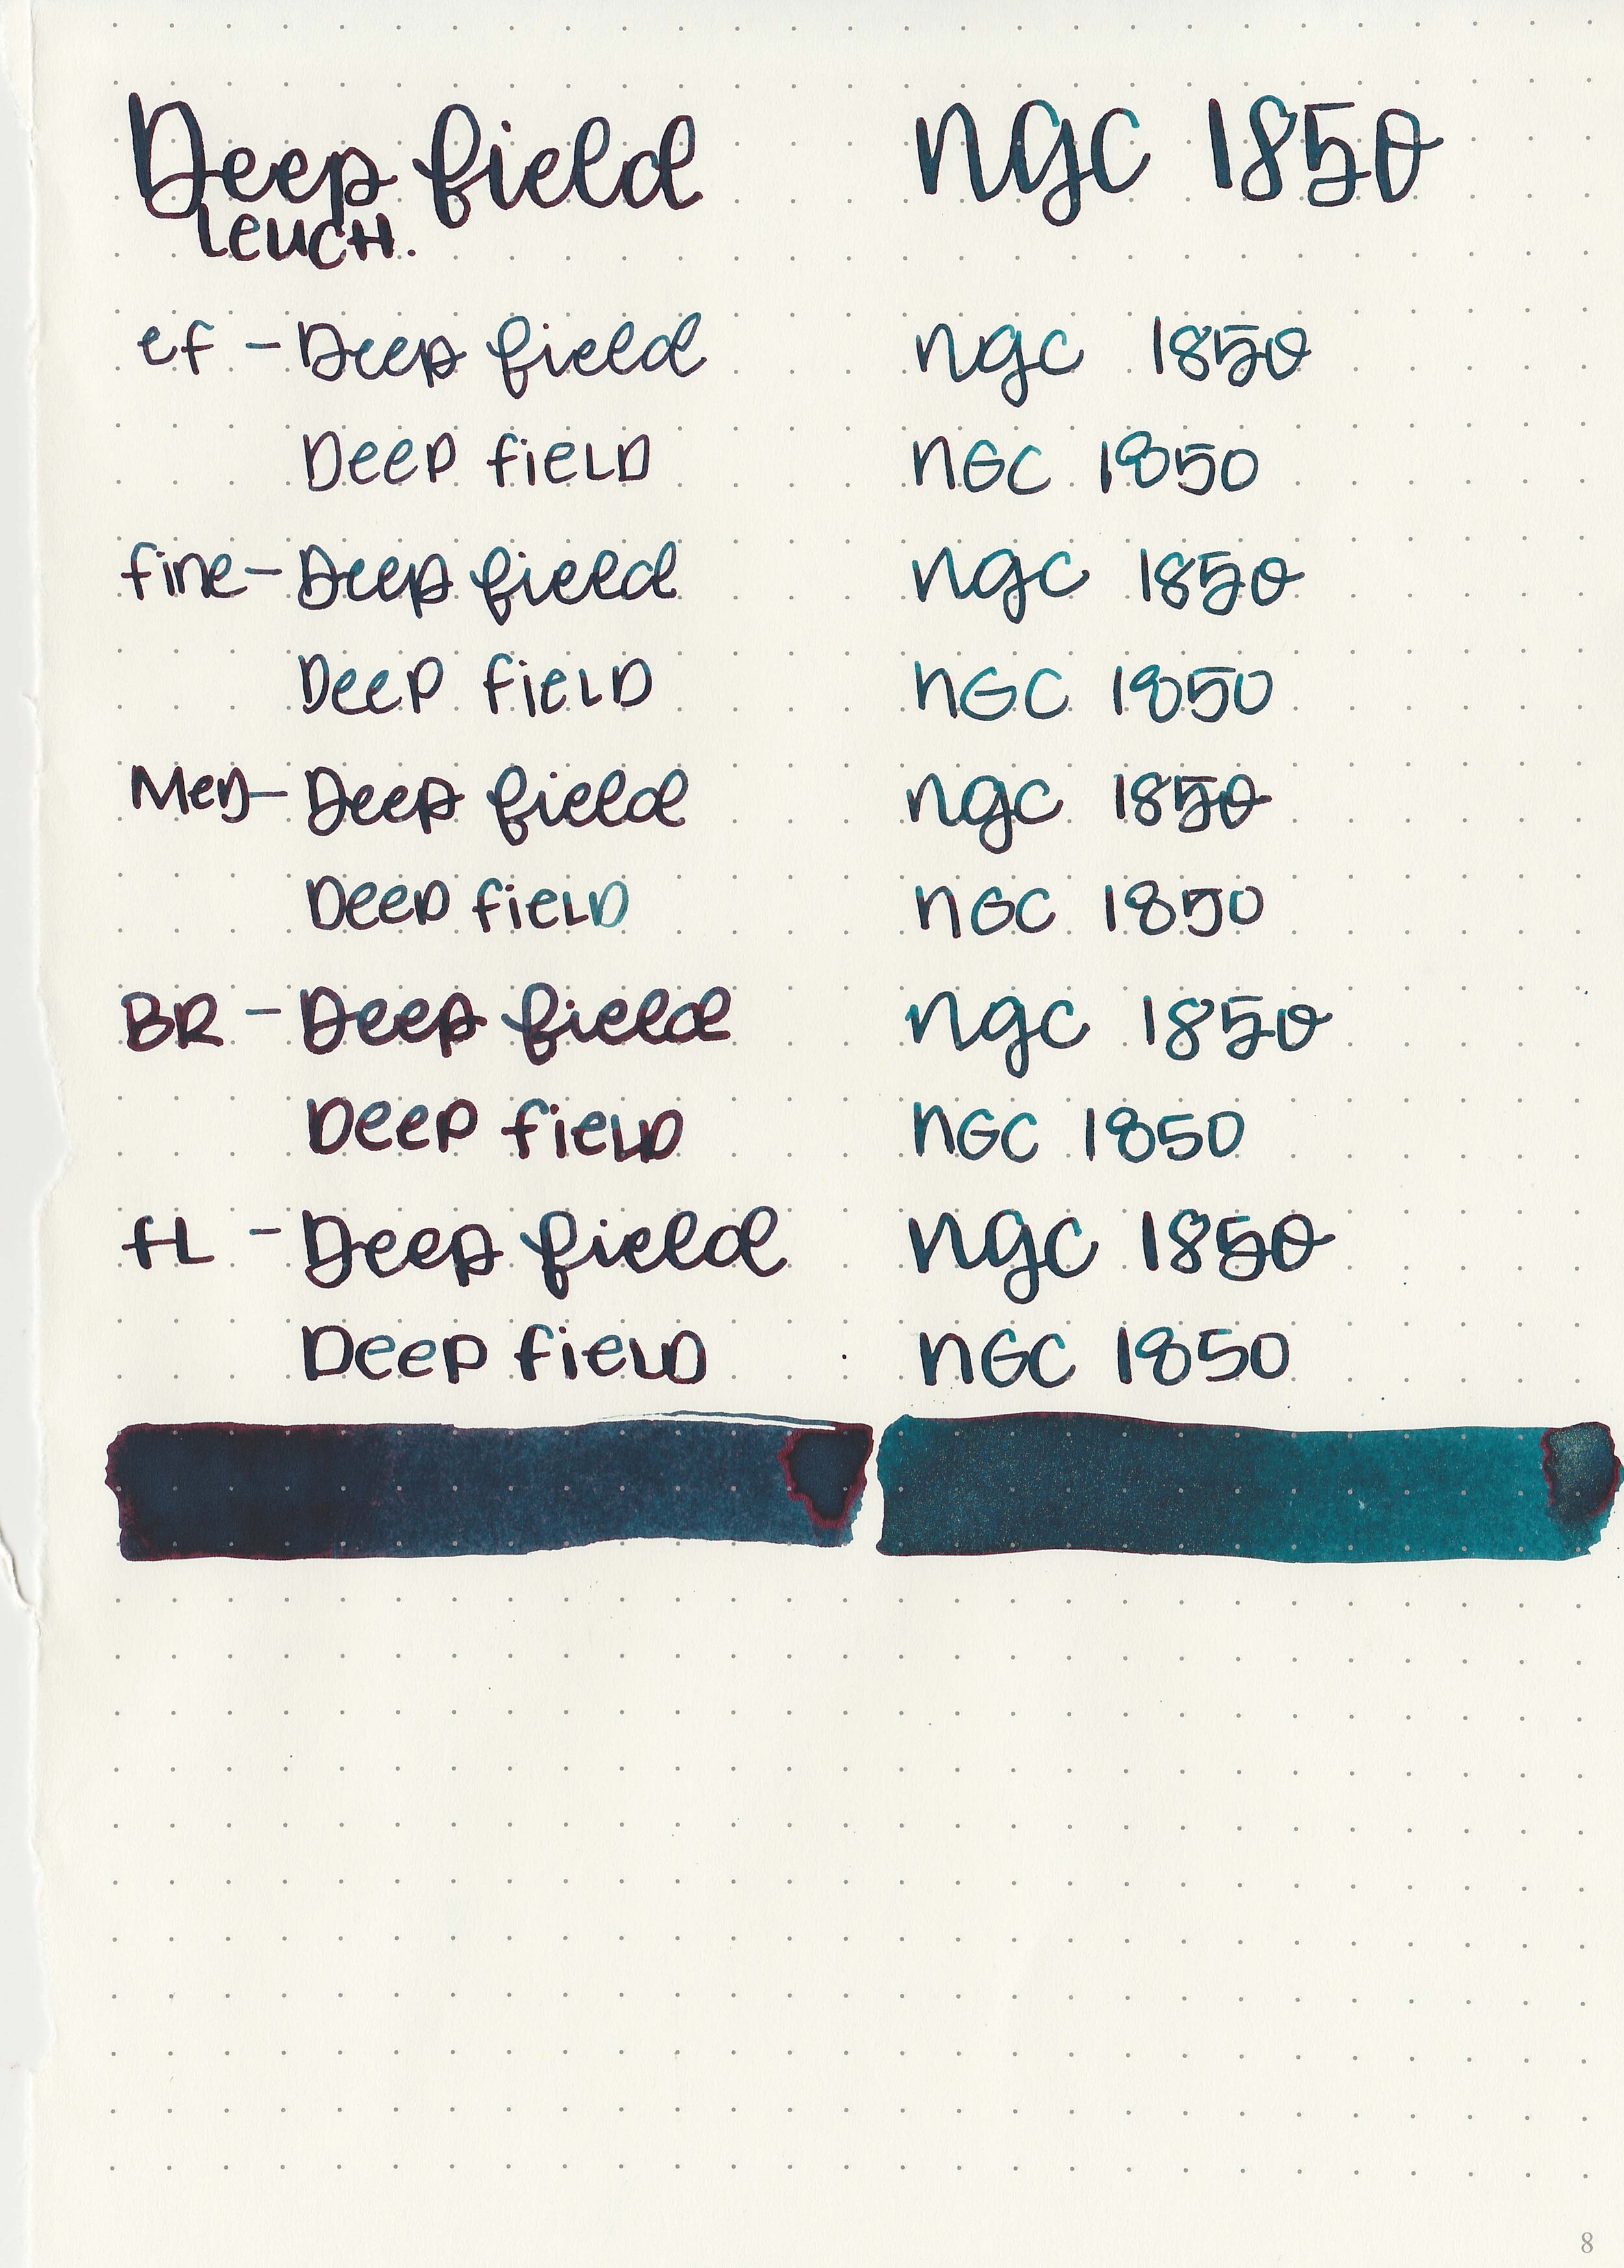 Deep field ngc 1850
Leuch.
ef - Deep field ngc 1850
Deep field NGC 1850
fine - Deep field ngc 1850
Deep field NGC 1850
Med - Deep field ngc 1850
Deep field NGC 1850
BR - Deep field ngc 1850
Deep field NGC 1850
fL - Deep field ngc 1850
Deep field NGC 1850
8